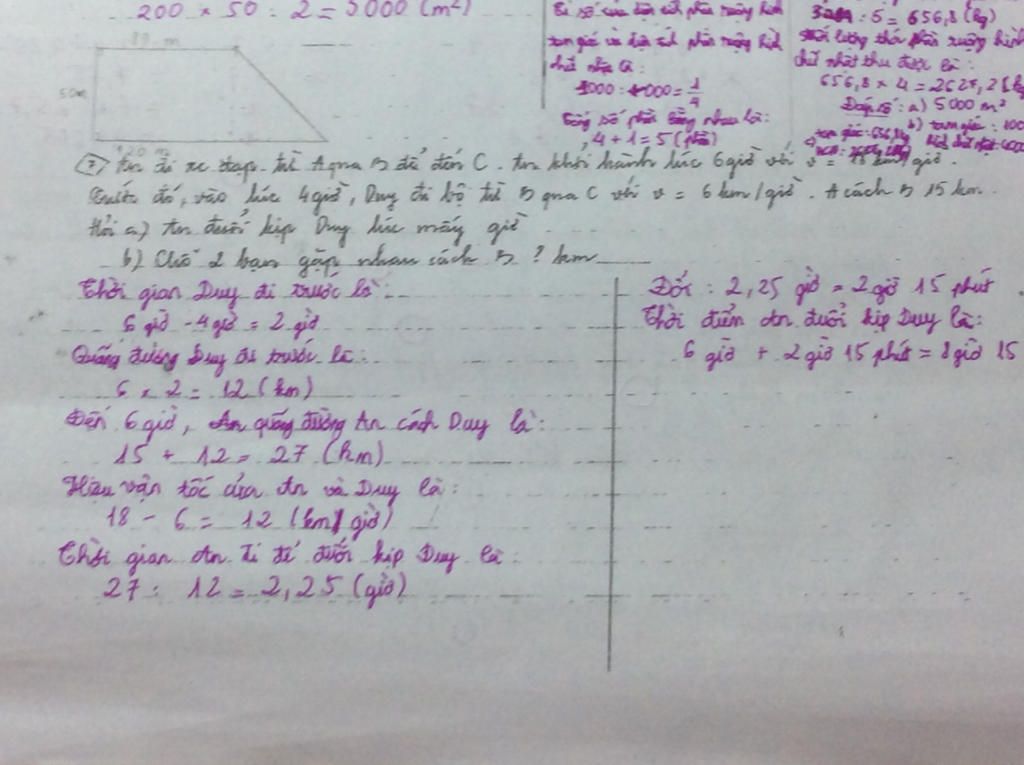 200 × 50 : 2 = 5000 (m²)
50m
120 m
Tỉ số của diện tích phần ruộng hình
tam giác và diện tích phần ruộng hình
chữ nhật là:
1000 : 4000 = 1/4
Tổng số phần bằng nhau là:
4 + 1 = 5 (phần)
: 5 = 656,8 (kg)
Khối lượng thóc phần ruộng hình
chữ nhật thu được là:
656,8 × 4 = 2627,2 (kg)
Đáp số: a) 5000 m²
b) tam giác: 100
7 An đi xe đạp từ A qua B để đến C. An khởi hành lúc 6 giờ với v = 18 km/giờ.
Trước đó, vào lúc 4 giờ, Duy đi bộ từ B qua C với v = 6 km/giờ. A cách B 15 km.
Hỏi a) An đuổi kịp Duy lúc mấy giờ
b) Chỗ 2 bạn gặp nhau cách B ? km
Thời gian Duy đi trước là:
6 giờ - 4 giờ = 2 giờ
Quãng đường Duy đi trước là:
6 × 2 = 12 (km)
Đến 6 giờ, An quãng đường An cách Duy là:
15 + 12 = 27 (km)
Hiệu vận tốc của An và Duy là:
18 - 6 = 12 (km/giờ)
Thời gian An đi để đuổi kịp Duy là:
27 : 12 = 2,25 (giờ)
Đổi: 2,25 giờ = 2 giờ 15 phút
Thời điểm An đuổi kịp Duy là:
6 giờ + 2 giờ 15 phút = 8 giờ 15